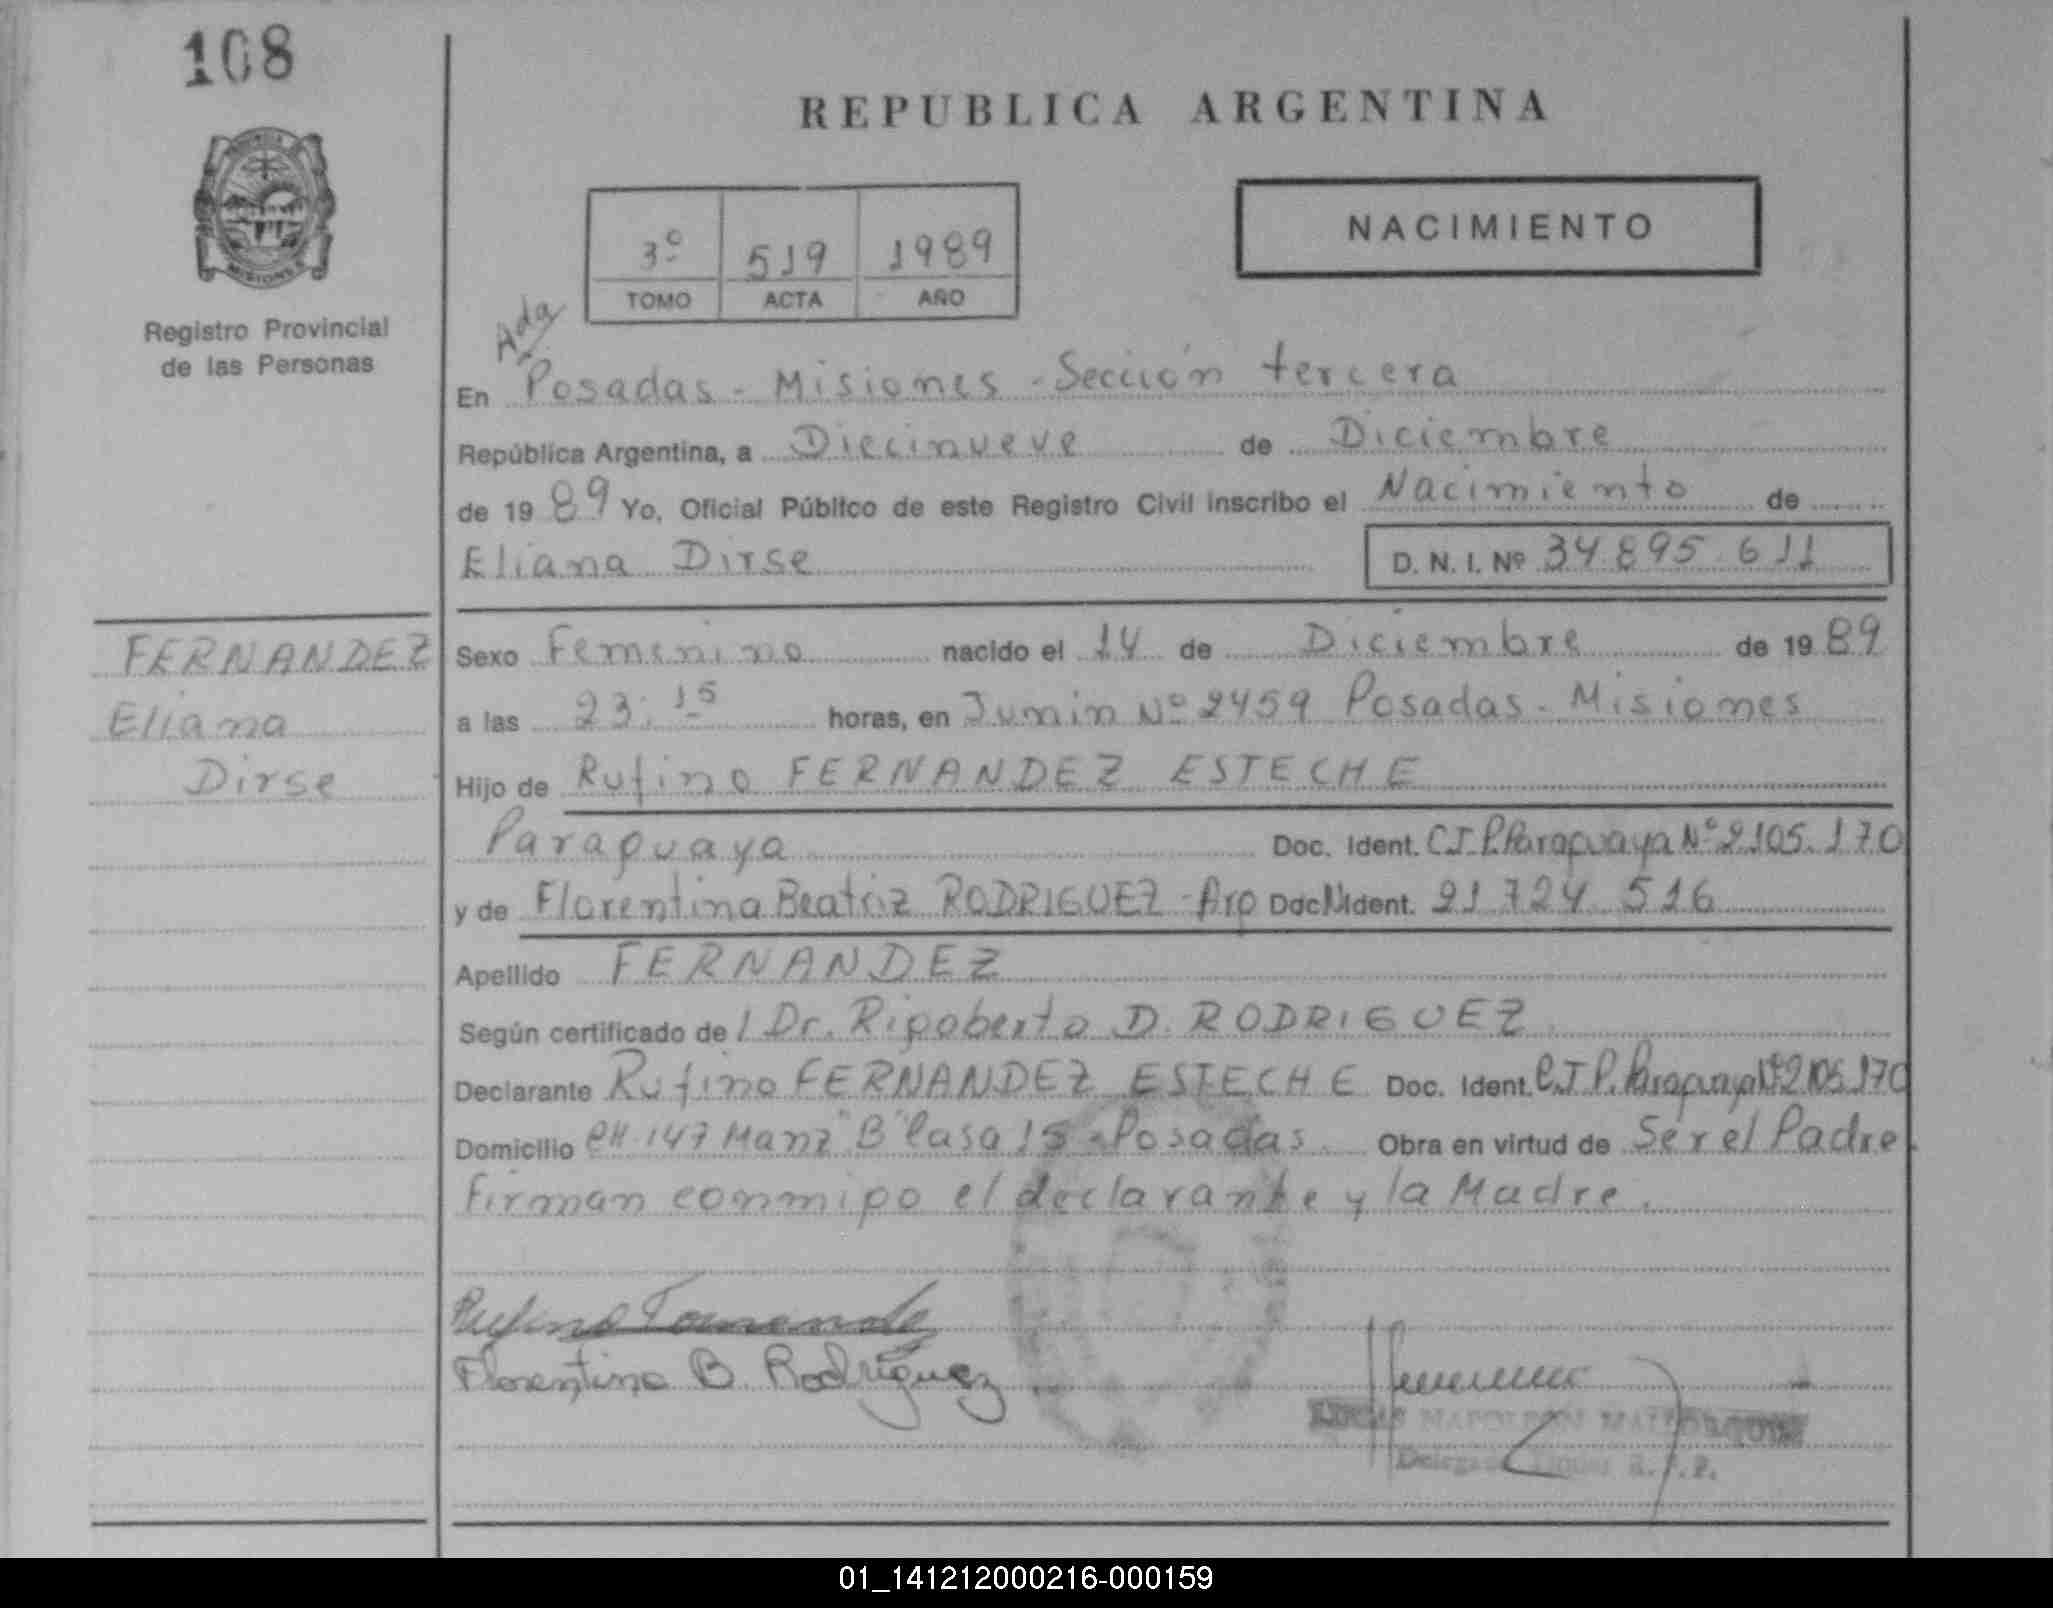 108
REPUBLICA ARGENTINA
NACIMIENTO
3º 519 1989
TOMO ACTA AÑO
Registro Provincial
de las Personas
Ada
En Posadas - Misiones - Sección tercera
República Argentina, a Diecinueve de Diciembre
de 1989 Yo, Oficial Público de este Registro Civil inscribo el Nacimiento de
Eliana Dirse D. N. I. Nº 34.895.611
FERNANDEZ
Eliana
Dirse
Sexo Femenino nacido el 14 de Diciembre de 1989
a las 23:15 horas, en Junin Nº 2459 Posadas - Misiones
Hijo de Rufino FERNANDEZ ESTECHE
Paraguaya Doc. Ident. C.I.P. Paraguaya Nº 2.105.170
y de Florentina Beatriz RODRIGUEZ - Arg Doc. Ident. 21.724.516
Apellido FERNANDEZ
Según certificado de / Dr. Rigoberto D. RODRIGUEZ
Declarante Rufino FERNANDEZ ESTECHE Doc. Ident. C.I.P. Paraguaya Nº 2.105.170
Domicilio CH. 147 Manz "B" Casa 15 - Posadas Obra en virtud de Ser el Padre.
Firman conmigo el declarante y la Madre.
Rufino Fernande
Florentina B. Rodríguez
NAPOLEON
R.P.P.
01_141212000216-000159